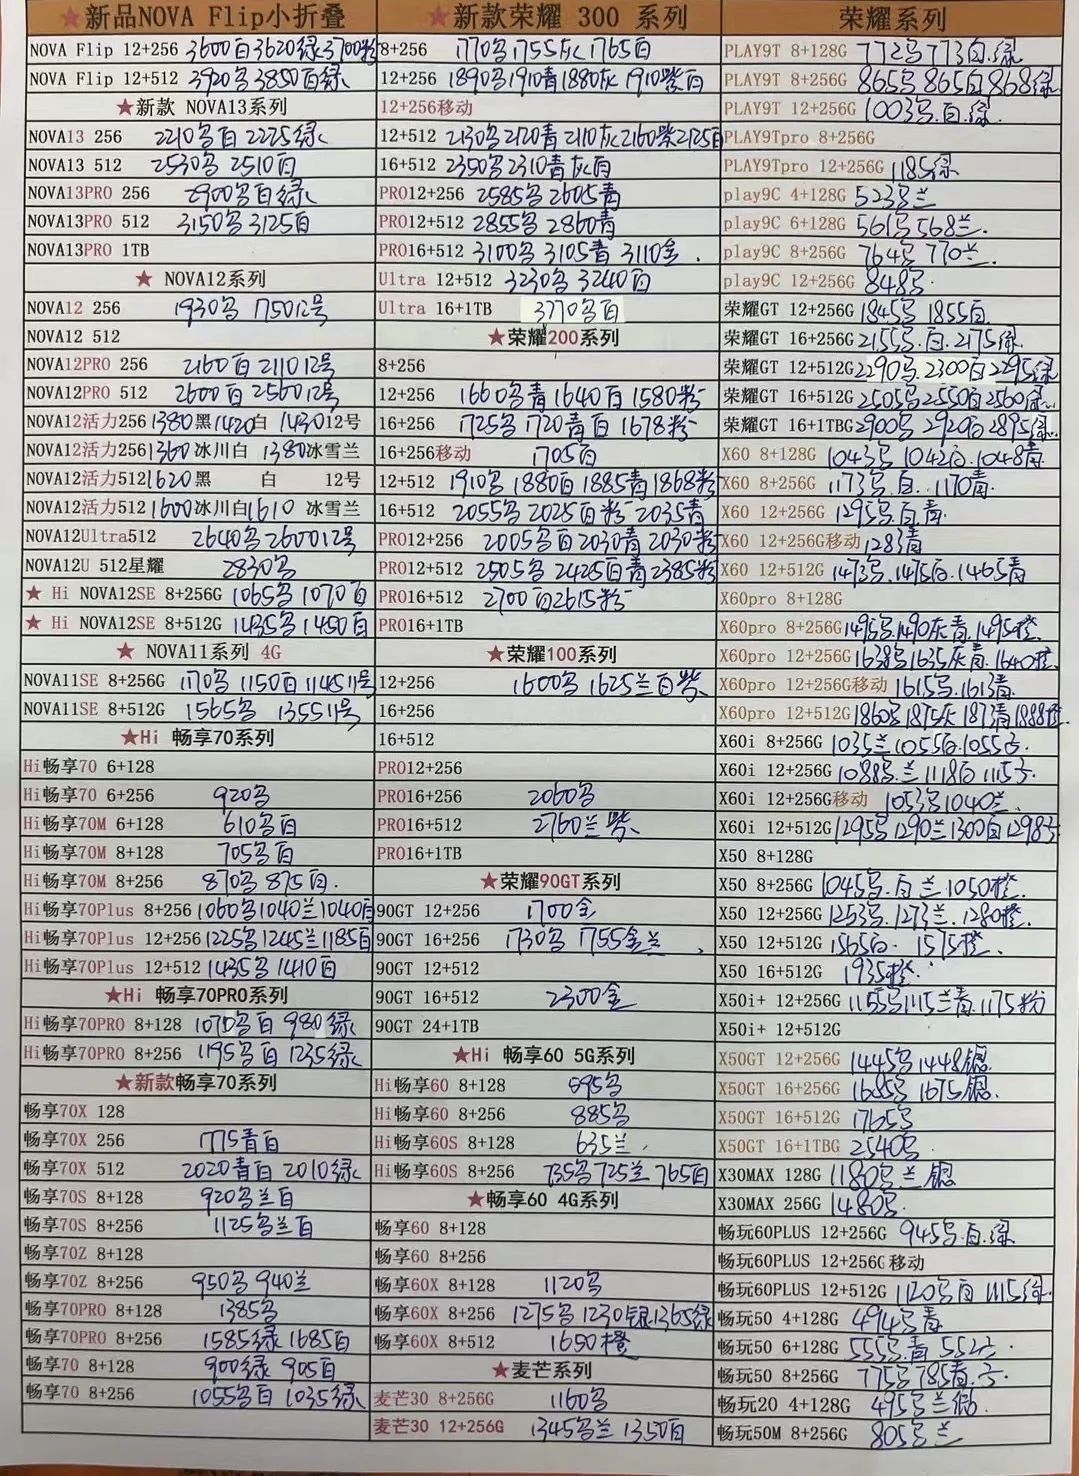 ★新品NOVA Flip小折叠
NOVA Flip 12+256 3600百3620绿3700粉
NOVA Flip 12+512 3920名3850百绿
★新款 NOVA13系列
NOVA13 256 2210名百 2225绿
NOVA13 512 2530名 2510百
NOVA13PRO 256 2900名百绿
NOVA13PRO 512 3150名 3125百
NOVA13PRO 1TB
★ NOVA12系列
NOVA12 256 1930名 1750 12号
NOVA12 512
NOVA12PRO 256 2160百 2110 12号
NOVA12PRO 512 2600百 2560 12号
NOVA12活力256 1380黑1420白 1430 12号
NOVA12活力256 1360冰川白 1380冰雪兰
NOVA12活力512 1620黑 白 12号
NOVA12活力512 1600冰川白1610 冰雪兰
NOVA12Ultra512 2640名2600 12号
NOVA12U 512星耀 2830名
★ Hi NOVA12SE 8+256G 1065名1070百
★ Hi NOVA12SE 8+512G 1435名1450百
★ NOVA11系列 4G
NOVA11SE 8+256G 1170名1150百1145 11号
NOVA11SE 8+512G 1565名 1355 11号
★Hi 畅享70系列
Hi畅享70 6+128
Hi畅享70 6+256 920名
Hi畅享70M 6+128 610名百
Hi畅享70M 8+128 705名百
Hi畅享70M 8+256 870名 875百.
Hi畅享70Plus 8+256 1060名1040兰1040百
Hi畅享70Plus 12+256 1225名1245兰1185百
Hi畅享70Plus 12+512 1435名 1410百
★Hi 畅享70PRO系列
Hi畅享70PRO 8+128 1070名百 980绿
Hi畅享70PRO 8+256 1195名百 1235绿
★新款畅享70系列
畅享70X 128
畅享70X 256 1775青百
畅享70X 512 2020青百 2010绿
畅享70S 8+128 920名兰百
畅享70S 8+256 1125名兰百
畅享70Z 8+128
畅享70Z 8+256 950名 940兰
畅享70PRO 8+128 1385名
畅享70PRO 8+256 1585绿 1685百
畅享70 8+128 900绿 905百
畅享70 8+256 1055名百 1035绿
★新款荣耀 300 系列
8+256 1770名1755灰1765百
12+256 1890名1910青1880灰1910紫百
12+256移动
12+512 2130名2120青2110灰2160紫2125百
16+512 2350名2310青灰百
PRO12+256 2585名 2605青
PRO12+512 2855名 2860青
PRO16+512 3100名 3105青 3110金
Ultra 12+512 3230名 3240百
Ultra 16+1TB 3770名百
★荣耀200系列
8+256
12+256 1660名青1640百1580粉
16+256 1725名1720青百1678粉
16+256移动 1705百
12+512 1910名1880百1885青1868粉
16+512 2055名2025百粉2035青
PRO12+256 2005名百2030青2030粉
PRO12+512 2505名2425百青2385粉
PRO16+512 2700百2615粉
PRO16+1TB
★荣耀100系列
12+256 1600名 1625兰百紫
16+256
16+512
PRO12+256
PRO16+256 2060名
PRO16+512 2760兰紫
PRO16+1TB
★荣耀90GT系列
90GT 12+256 1700金
90GT 16+256 1730名 1755金兰
90GT 12+512
90GT 16+512 2300金
90GT 24+1TB
★Hi 畅享60 5G系列
Hi畅享60 8+128 695名
Hi畅享60 8+256 885名
Hi畅享60S 8+128 635兰.
Hi畅享60S 8+256 735名725兰765百
★畅享60 4G系列
畅享60 8+128
畅享60 8+256
畅享60X 8+128 1120名
畅享60X 8+256 1275名1230银1365绿
畅享60X 8+512 1650橙
★麦芒系列
麦芒30 8+256G 1160名
麦芒30 12+256G 1345名兰1350百
荣耀系列
PLAY9T 8+128G 772名773百.绿
PLAY9T 8+256G 865名865百868绿
PLAY9T 12+256G 1003名.百.绿.
PLAY9Tpro 8+256G
PLAY9Tpro 12+256G 1185绿
play9C 4+128G 523名兰
play9C 6+128G 561名568兰.
play9C 8+256G 764名 770兰.
play9C 12+256G 848名.
荣耀GT 12+256G 1845名1855百.
荣耀GT 16+256G 2155名.百.2175绿.
荣耀GT 12+512G 2290名.2300百2295绿
荣耀GT 16+512G 2505名2550百2560绿.
荣耀GT 16+1TBG 2900名 2920百2895绿.
X60 8+128G 1043名 1042百.1048青
X60 8+256G 1173名.百.1170青.
X60 12+256G 1295名.百青.
X60 12+256G移动 1283青
X60 12+512G 1473名.1475百.1465青
X60pro 8+128G
X60pro 8+256G 1495名.1490灰青.1495橙.
X60pro 12+256G 1638名1635灰青.1640橙.
X60pro 12+256G移动 1615名.1613青.
X60pro 12+512G 1860名1875灰1873青1888橙.
X60i 8+256G 1035兰1055百.1055云.
X60i 12+256G 1088名.兰1118百1115云.
X60i 12+256G移动 1053名1040兰.
X60i 12+512G 1295名1290兰1300百1298云
X50 8+128G
X50 8+256G 1045名.百兰1050橙.
X50 12+256G 1253名.1273兰.1280橙.
X50 12+512G 1565百. 1575橙.
X50 16+512G 1935橙.
X50i+ 12+256G 1155名1115兰青.1175粉
X50i+ 12+512G
X50GT 12+256G 1445名1448银.
X50GT 16+256G 1685名 1675银.
X50GT 16+512G 1765名
X50GT 16+1TBG 2540名
X30MAX 128G 1180名兰银
X30MAX 256G 1480名.
畅玩60PLUS 12+256G 945名.百.绿
畅玩60PLUS 12+256G移动
畅玩60PLUS 12+512G 1120名百1115绿.
畅玩50 4+128G 494名青
畅玩50 6+128G 555名.青 552云.
畅玩50 8+256G 775名785青.云.
畅玩20 4+128G 495名兰银.
畅玩50M 8+256G 805名兰